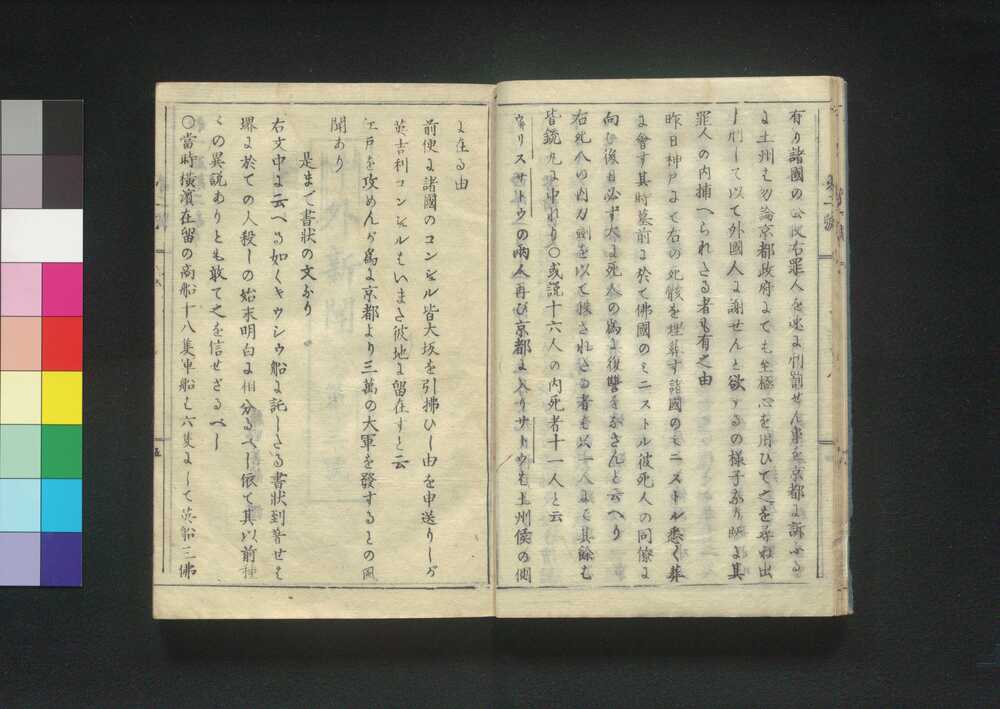 有り諸國の公使右罪人を速よ刑罰せん事を京都よ訴ふる
よ土州も勿論京都政府よても至極心を用ひて之を尋ね出
し刑して以て外國人よ謝せんと欲するの様子なり既よ其
罪人の内捕へられたる者も有之由
昨日神戸よて右の死骸を埋葬す諸國のミニストル悉く葬
よ會す其時墓前よ於て佛國のミニストル彼死人の同僚よ
向ひ後日必ず大よ死人の爲よ復讐をなさんと云へり
右死人の内刀劍を以て殺されたる者も一人よて其餘も
皆銃丸よ中れり〇或説十六人の内死者十一人と云
ウリスサトウの兩人再び京都よ入りサトウも土州侯の側
よ在る由
前便よ諸國のコンシユル皆大坂を引拂ひし由を申送りしが
英吉利コンシユルもいまだ彼地よ留在すと云
江戸を攻めんが爲よ京都より三萬の大軍を發するとの風
聞あり
是まで書状の文なり
右文中よ云へる如くキウシウ船よ託したる書状到着せも
堺よ於ての人殺しの始末明白よ相分るべし依て其以前種
々の異説ありとも敢て之を信せざるべし
〇當時横濱在留の商船十八隻軍船も六隻よして英船三佛
五